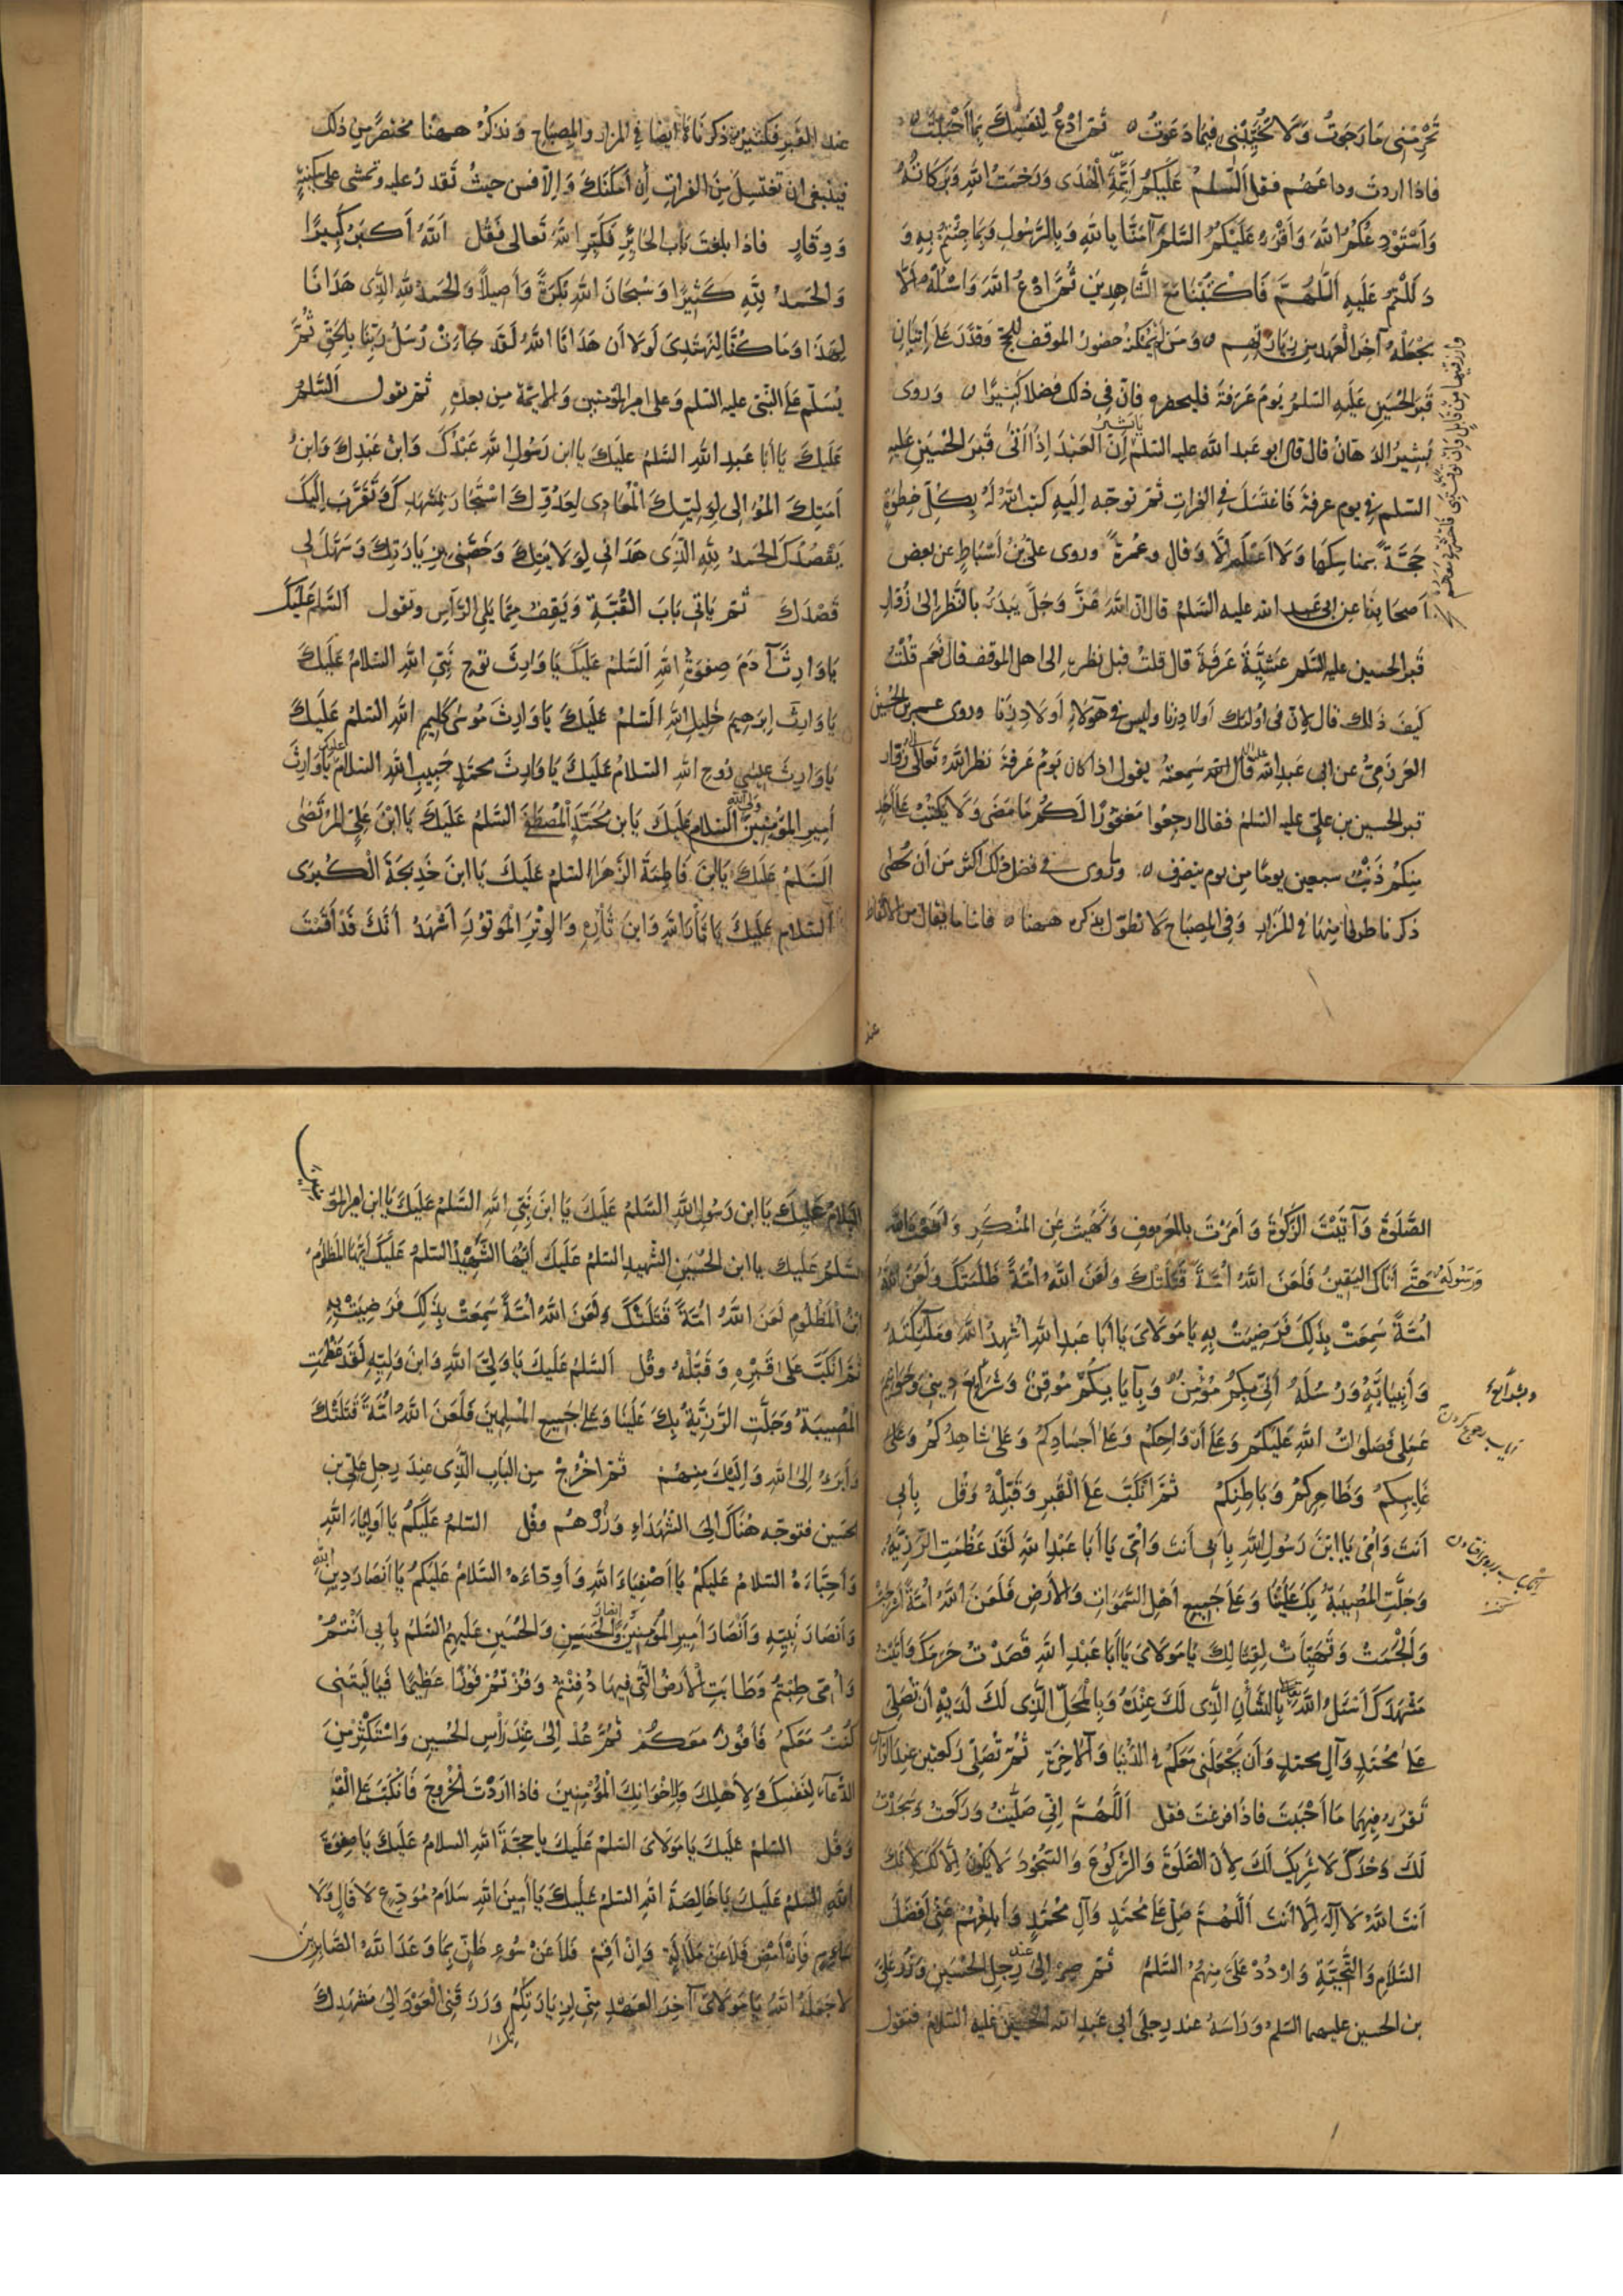 تَحْرِمْنِي مَا رَجَوْتُ وَلَا تُخَيِّبْنِي فِيمَا دَعَوْتُ ثم ادْعُ لِنَفْسِكَ بِمَا أَحْبَبْتَ
فاذا اردتَ وداعَهُم فقل السَّلمُ عَلَيكُم أئِمَّةَ الْهُدَى وَرَحْمَتُ اللهِ وَبَرَكَاتُهُ
وَأَسْتَوْدِعُكُمُ اللهَ وَأَقْرَءُ عَلَيْكُمُ السَّلمَ آمَنَّا بِاللهِ وَبِالرَّسُولِ وَبِمَا جِئْتُمْ بِهِ وَ
دَلَلْتُمْ عَلَيهِ اَللّهُمَّ فَاكْتُبْنَا مَعَ الشَّاهِدِينَ ثُمَّ ادْعُ اللهَ وَاسْئَلْهُ اَلّا
يَجْعَلَهُ آخِرَ الْعَهدِ مِن زِيَارَتِهِم وَمَن لَمْ يُمْكِنْهُ حضورُ الموقف للحج وَقَدَرَ عَلَى اِتيَانِ
قَبْرِ الْحُسَينِ عَلَيهِ السَّلمُ يَومَ عَرَفَةَ فليحضره فاِنّ فِي ذلك فضلا كَثِيرًا وَروى
بَشِيرُ الدّهانُ قال قال ابو عَبدِ الله عليه السّلم يا بشير اِنّ العَبْدَ اِذَا اَتَى قَبْرَ الحُسَينِ عَلَيهِ
السّلم فِي يوم عرفةَ فَاغتَسَلَ فِي الفرات ثُمّ توجّه اِلَيهِ كتب اللهُ لَهُ بِكُلّ خطوَةٍ
حَجَّةً بمناسِكِهَا وَلَا اَعْلَمُ اِلَّا وَقال وعُمرَةً وروى عليُّ بْنُ اَسْبَاطٍ عن بعض
اَصحَابِنَا عن ابى عَبدِ الله عليه السّلمُ قال اِنّ اللهَ عَزَّ وَجَلَّ يَبْدَءُ بالنَّظَرِ اِلىٰ زُوّارِ
قَبرِ الحسين عليه السّلم عَشِيَّةَ عَرَفَةَ قال قلتُ قبل نظره الى اهل الموقف قال نَعَم قُلْتُ
كَيفَ ذَلك قال لاِنّ فى اُولئك اَولادِ زنا وليس فى هٰؤلاءِ اَولادِ زِنا وروى عمر بن الحُسَينِ
العَرزَمِيّ عن ابى عَبدِ الله قال سَمِعتهُ يقول اذا كان يَومُ عَرفةَ نظر اللهُ تَعَالَى الى زُوّار
قبر الحسين بن عليّ عليه السّلمُ فقال ارجِعُوا مَغفُورًا لَكُم مَا مَضَى وَلَا يُكتَبُ عَلَى أَحَدٍ
مِنكُم ذَنبٌ سبعين يومًا مِن يوم ينصَرِف وروى في فضل ذلك اكثر مِن أن يُحصى
ذكرنا طرفا مِنهَا فِى المزَارِ وَفِى المِصبَاحِ لا نطوّل بذكره ههنا فاما ما يقال من الالفاظ
عند
عندَ القَبرِ فَكثيرٌ ذكرناهُ ايضا في المزار والمِصبَاحِ وَنذكرُ ههنا مختصرًا مِن ذلك
ينبغى ان تغتَسِلَ مِنَ الفراتِ إن أَمكَنَكَ وَاِلّا فمن حيثُ تَقدرُ عليه وتمشى على سكِينةٍ
وَوقارٍ فاذا بلغتَ بابَ الحَائِرِ فَكَبِّرِ اللهَ تَعالى فَقُل اَللهُ أَكبَرُ كَبِيرًا
وَالحَمدُ لِلّهِ كَثِيرًا وَسُبحَانَ اللهِ بُكرَةً وَأَصِيلًا وَالحَمدُ للهِ الّذِى هَدَانَا
لِهَذَا وَمَا كُنَّا لِنَهتَدِىَ لَولَا أَن هَدَانَا اللهُ لَقَد جَاءَتْ رُسُلُ رَبِّنَا بِالحَقِّ ثُمَّ
يُسَلّم عَلَى النّبى عليه السّلم وعلى امير المؤمنين وَالائِمّة مِن بعدِهِ ثمّ تقول اَلسَّلمُ
عَلَيكَ يَا أَبَا عَبدِ اللهِ السّلمُ عَلَيكَ يا ابن رَسُولِ اللهِ عَبْدُكَ وَابنُ عَبْدِكَ وَابنُ
أَمَتِكَ المُوَالى لِوَلِيِّكَ الْمُعَادِى لِعَدُوِّكَ اسْتَجَارَ بِمَشهَدِكَ وَتَقَرَّبَ اِلَيكَ
بِقَصْدِكَ الحَمدُ لِلّهِ الّذِى هَدَانِى لِوَلَايَتِكَ وَخَصَّنِى بِزِيَارَتِكَ وَسَهَّلَ لِى
قَصْدَكَ ثم يَاتى بَابَ القُبَّةِ وَيَقِفُ مِمَّا يَلِى الرَّأسَ وتقول اَلسَّلمُ عَلَيكَ
يَا وَارِثَ آدَمَ صِفوَةِ اللهِ اَلسَّلمُ عَلَيكَ يَا وَارِثَ نوحٍ نَبِىِّ اللهِ السّلامُ عَلَيكَ
يَا وَارِثَ اِبرَهِيمَ خَلِيلِ اللهِ اَلسّلمُ عَلَيكَ يَا وَارِثَ مُوسَى كَلِيمِ اللهِ السّلمُ عَلَيكَ
يَا وَارِثَ عِيسَى رُوحِ اللهِ السّلامُ عَلَيكَ يَا وَارِثَ محمّدٍ حَبِيبِ اللهِ السلامُ عليك يَا وَارِثَ
أَمِيرِ المُؤمِنِينَ ولى الله اَلسّلام عَلَيكَ يَا بن مُحَمّدٍ الْمُصطَفَى السّلمُ عَلَيكَ يَا ابْنَ عَلِىٍّ المُرتَضَى
اَلسّلمُ عَلَيكَ يَا ابنَ فَاطِمَةَ الزّهرَاءِ السّلمُ عَلَيكَ يَا ابنَ خَدِيجَةَ الْكُبرَى
اَلسّلام عَلَيكَ يَا ثَأرَ اللهِ وَابنَ ثَأرِهِ وَالوِتْرَ المَوتُورَ أَشهَدُ أَنَّكَ قَدْ أَقَمْتَ
الصَّلَوةَ وَآتَيْتَ الزَّكوةَ وَأَمَرْتَ بِالمَعروفِ وَنَهَيتَ عَنِ المُنكَرِ وَأَطَعتَ اللهَ
وَرَسُولَهُ حَتَّى أَتَاكَ اليَقِينُ فَلَعَنَ اللهُ أُمَّةً قَتَلَتْكَ وَلَعَنَ اللهُ أُمَّةً ظَلَمَتكَ وَلَعَنَ اللهُ
اُمَّةً سَمِعَتْ بِذلِكَ فَرَضِيَتْ بِهِ يَا مَولَاىَ يَا أَبَا عَبدِ اللهِ اُشهِدُ اللهَ وَمَلٰئِكَتَهُ
وَأَنبِيَائَهُ وَرُسُلَهُ أَنِّى بِكُم مُؤمِنٌ وَبِإِيَابِكُمْ مُوقِنٌ وَشَرَايِعِ دِينِى وَخَوَاتِيمِ
عَمَلِى فَصَلَوَاتُ اللهِ عَلَيكُم وَعَلَى أَرْوَاحِكُم وَعَلَى أَجسَادِكُم وَعَلَى شَاهِدِكُم وَعَلَى
غَائِبِكُم وَظَاهِرِكُم وَبَاطِنِكُم ثُمَّ انْكَبَّ عَلَى القَبرِ وَقَبِّلْهُ وَقُل بِأَبِى
أنتَ وَاُمِّى يَا ابنَ رَسُولِ اللهِ بِأبى أنتَ وَاُمّى يَا أَبَا عَبْدِ اللهِ لَقَد عَظُمَتِ الرَّزِيَّةُ
وَجَلَّتِ المُصِيبَةُ بِكَ عَلَينَا وَعَلَى جَمِيعِ أَهْلِ السَّمَوَاتِ وَالأَرضِ فَلَعَنَ اللهُ اُمَّةً أَسرَجَتْ
وَأَلجَمَتْ وَتَهَيَّأَتْ لِقِتَالِكَ يَا مَولَاىَ يَا أَبَا عَبْدِ اللهِ قَصَدْتُ حَرَمَكَ وَأَتَيْتُ
مَشْهَدَكَ أَسْئَلُ اللهَ بِالشَّأنِ الَّذِى لَكَ عِنْدَهُ وَبِالْمَحَلِّ الَّذِى لَكَ لَدَيْهِ أَن تُصَلِّىَ
عَلَى مُحَمّدٍ وَآلِ محمّدٍ وَأَن يَجْعَلَنِى مَعَكُم فِى الدُّنيَا وَالآخِرَةِ ثُمّ تُصَلّى رَكعتين عند الرأس
تَقرَءُ فِيهِمَا مَا أَحْبَبتَ فَاذا فرغتَ فقل اَللّهُمَّ اِنِّى صَلَّيْتُ وَرَكَعتُ وَسَجَدتُ
لَكَ وَحدَكَ لا شَرِيكَ لَكَ لِأَنّ الصَّلوةَ وَالرُّكُوعَ وَالسّجُودَ لَا يَكُونُ اِلّا لَكَ لِأَنَّكَ
أَنتَ اللهُ لَا اِلَهَ اِلّا أَنتَ اَللّهُمَّ صَلِّ عَلَى مُحَمّدٍ وَآلِ مُحَمّدٍ وَأَبلِغهُم عَنّى أَفضَلَ
السَّلَامِ وَالتَّحِيَّةِ وَارْدُدْ عَلَىَّ مِنهُمُ السَّلمَ ثُمّ صِر اِلى عند رِجلِ الحُسَينِ وَزُر عَلِىَّ
بن الحسين عليهما السّلم وَرَأسَهُ عند رِجلَى أبى عَبدِ الله الحُسَين عَليه السّلام فتقول
السّلام عَلَيكَ يَا ابن رَسُولِ اللهِ السَّلمُ عَلَيكَ يَا ابنَ نَبِىِّ اللهِ السَّلمُ عَلَيكَ يَا ابن امير المؤمنين
السّلمُ عَلَيك يا ابن الحُسَينِ الشّهيدِ السّلمُ عَلَيكَ أَيّهَا الشَّهِيدُ السّلمُ عَلَيكَ أَيّهَا المَظلُومُ
ابنُ المَظلُومِ لَعَنَ اللهُ اُمّةً قَتَلَتْكَ وَلَعَنَ اللهُ اُمَّةً سَمِعَتْ بِذلِكَ فَرَضِيَتْ بِهِ
ثُمَّ انكَبَّ عَلَى قَبْرِهِ وَقَبِّلْهُ وَقُل اَلسّلمُ عَلَيكَ يَا وَلِىَّ اللهِ وَابنَ وَلِيِّهِ لَقَد عَظُمَتِ
المُصِيبَةُ وَجَلَّتِ الرَّزِيَّةُ بِكَ عَلَينَا وَعَلَى جَمِيعِ المُسلِمِينَ فَلَعَنَ اللهُ اُمّةً قَتَلَتْكَ
وَأَبرَءُ اِلَى اللهِ وَاِلَيكَ مِنهُمْ ثمّ اخْرُجْ مِن البَابِ الَّذِى عِندَ رِجلِ عَلِىّ بن
الحسين فتوجّه هُنَاكَ اِلَى الشّهَدَاءِ وَزُرْهُم وقُل السّلمُ عَلَيكُم يَا أَولِيَاءَ اللهِ
وَأَحِبَّاءَهُ السّلامُ عَلَيكُم يَا أَصفِيَاءَ اللهِ وَأَوِدّاءَهُ السّلامُ عَلَيكُم يَا أَنصَارَ دِينِ اللهِ
وَأَنصَارَ نَبِيِّهِ وَأَنصَارَ أَمِيرِ المُؤمِنِينَ وانصار الحَسَنِ وَالحُسَينِ عَلَيهِمُ السّلمُ بِأَبِى أَنْتُمْ
وَاُمّى طِبْتُم وَطَابَتِ الأَرضُ الّتِى فِيهَا دُفِنتُم وَفُزتُم فَوزًا عَظِيمًا فَيَا لَيتَنِى
كُنتُ مَعَكُم فَأَفُوزَ مَعَكُم ثُمَّ عُدْ اِلىٰ عِنْدِ رَأسِ الحُسَينِ وَاسْتَكثِر مِنَ
الدُّعَاءِ لِنَفْسِكَ وَلِأَهلِكَ وَلِاِخوَانِكَ المُؤمِنِينَ فاذا اَرَدْتَ الخُرُوجَ فَانكَبَّ عَلَى القَبرِ
وَقُل السّلمُ عَلَيكَ يَا مَولَاىَ السّلمُ عَلَيكَ يا حجّةَ اللهِ السلامُ عَلَيكَ يَا صِفوَةَ
اللهِ السّلمُ عَلَيكَ يَا خَالِصَةَ اللهِ السّلمُ عَلَيكَ يَا أَمِينَ اللهِ سَلَامَ مُوَدِّعٍ لَا قَالٍ وَلَا
سَئِمٍ فَاِنْ أَمضِ فَلَا عَن مَلَالَةٍ وَاِنْ أُقِمْ فَلَا عَنْ سُوءِ ظَنٍّ بِمَا وَعَدَ اللهُ الصَّابِرِينَ
لا جَعَلَهُ اللهُ يَا مَولَاىَ آخِرَ العَهدِ مِنّى لِزِيَارَتِكُم وَرَزَقَنِى العَودَ اِلَى مَشْهَدِكَ